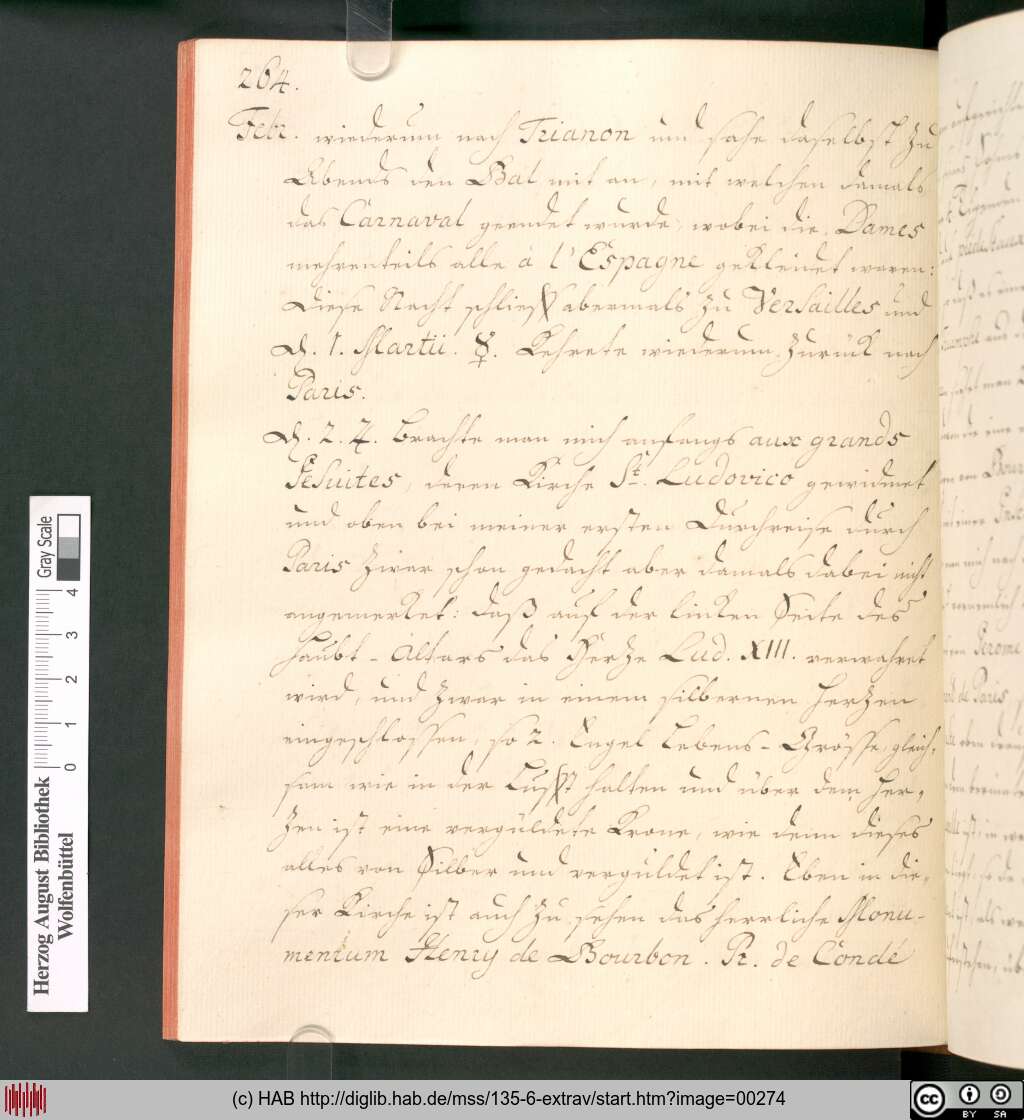 264.
Febr. wiederum nach Trianon und sahe daselbst zu
Abends den Bal mit an, mit welchen damals
das Carnaval geendet wurde, wobei die Dames
mehrenteils alle à l'Espagne gekleidet waren:
diese Nacht schlieff abermals zu Versailles und
d. 1. Martii. ☿. kehrete wiederum zurück nach
Paris.
d. 2. ♃. brachte man mich anfangs aux grands
Jesuites, deren Kirche St. Ludovico gewidmet
und oben bei meiner ersten Durchreise durch
Paris zwar schon gedacht aber damals dabei nicht
angemerket: daß auf der linken Seite des
Haubt-Altars das Hertze Lud. XIII. verwahret
wird, und zwar in einem silbernen Hertzen
eingeschlossen, so 2. Engel Lebens-Grösse, gleich-
sam wie in der Lufft halten und über dem Her-
zen ist eine vergüldete Krone, wie denn dieses
alles von Silber und verguldet ist. Eben in die-
ser Kirche ist auch zu sehen das herrliche Monu-
mentum Henry de Bourbon. Pr. de Condé
Herzog August Bibliothek
Wolfenbüttel
0 1 2 3 4
Gray Scale
(c) HAB http://diglib.hab.de/mss/135-6-extrav/start.htm?image=00274
CC BY SA